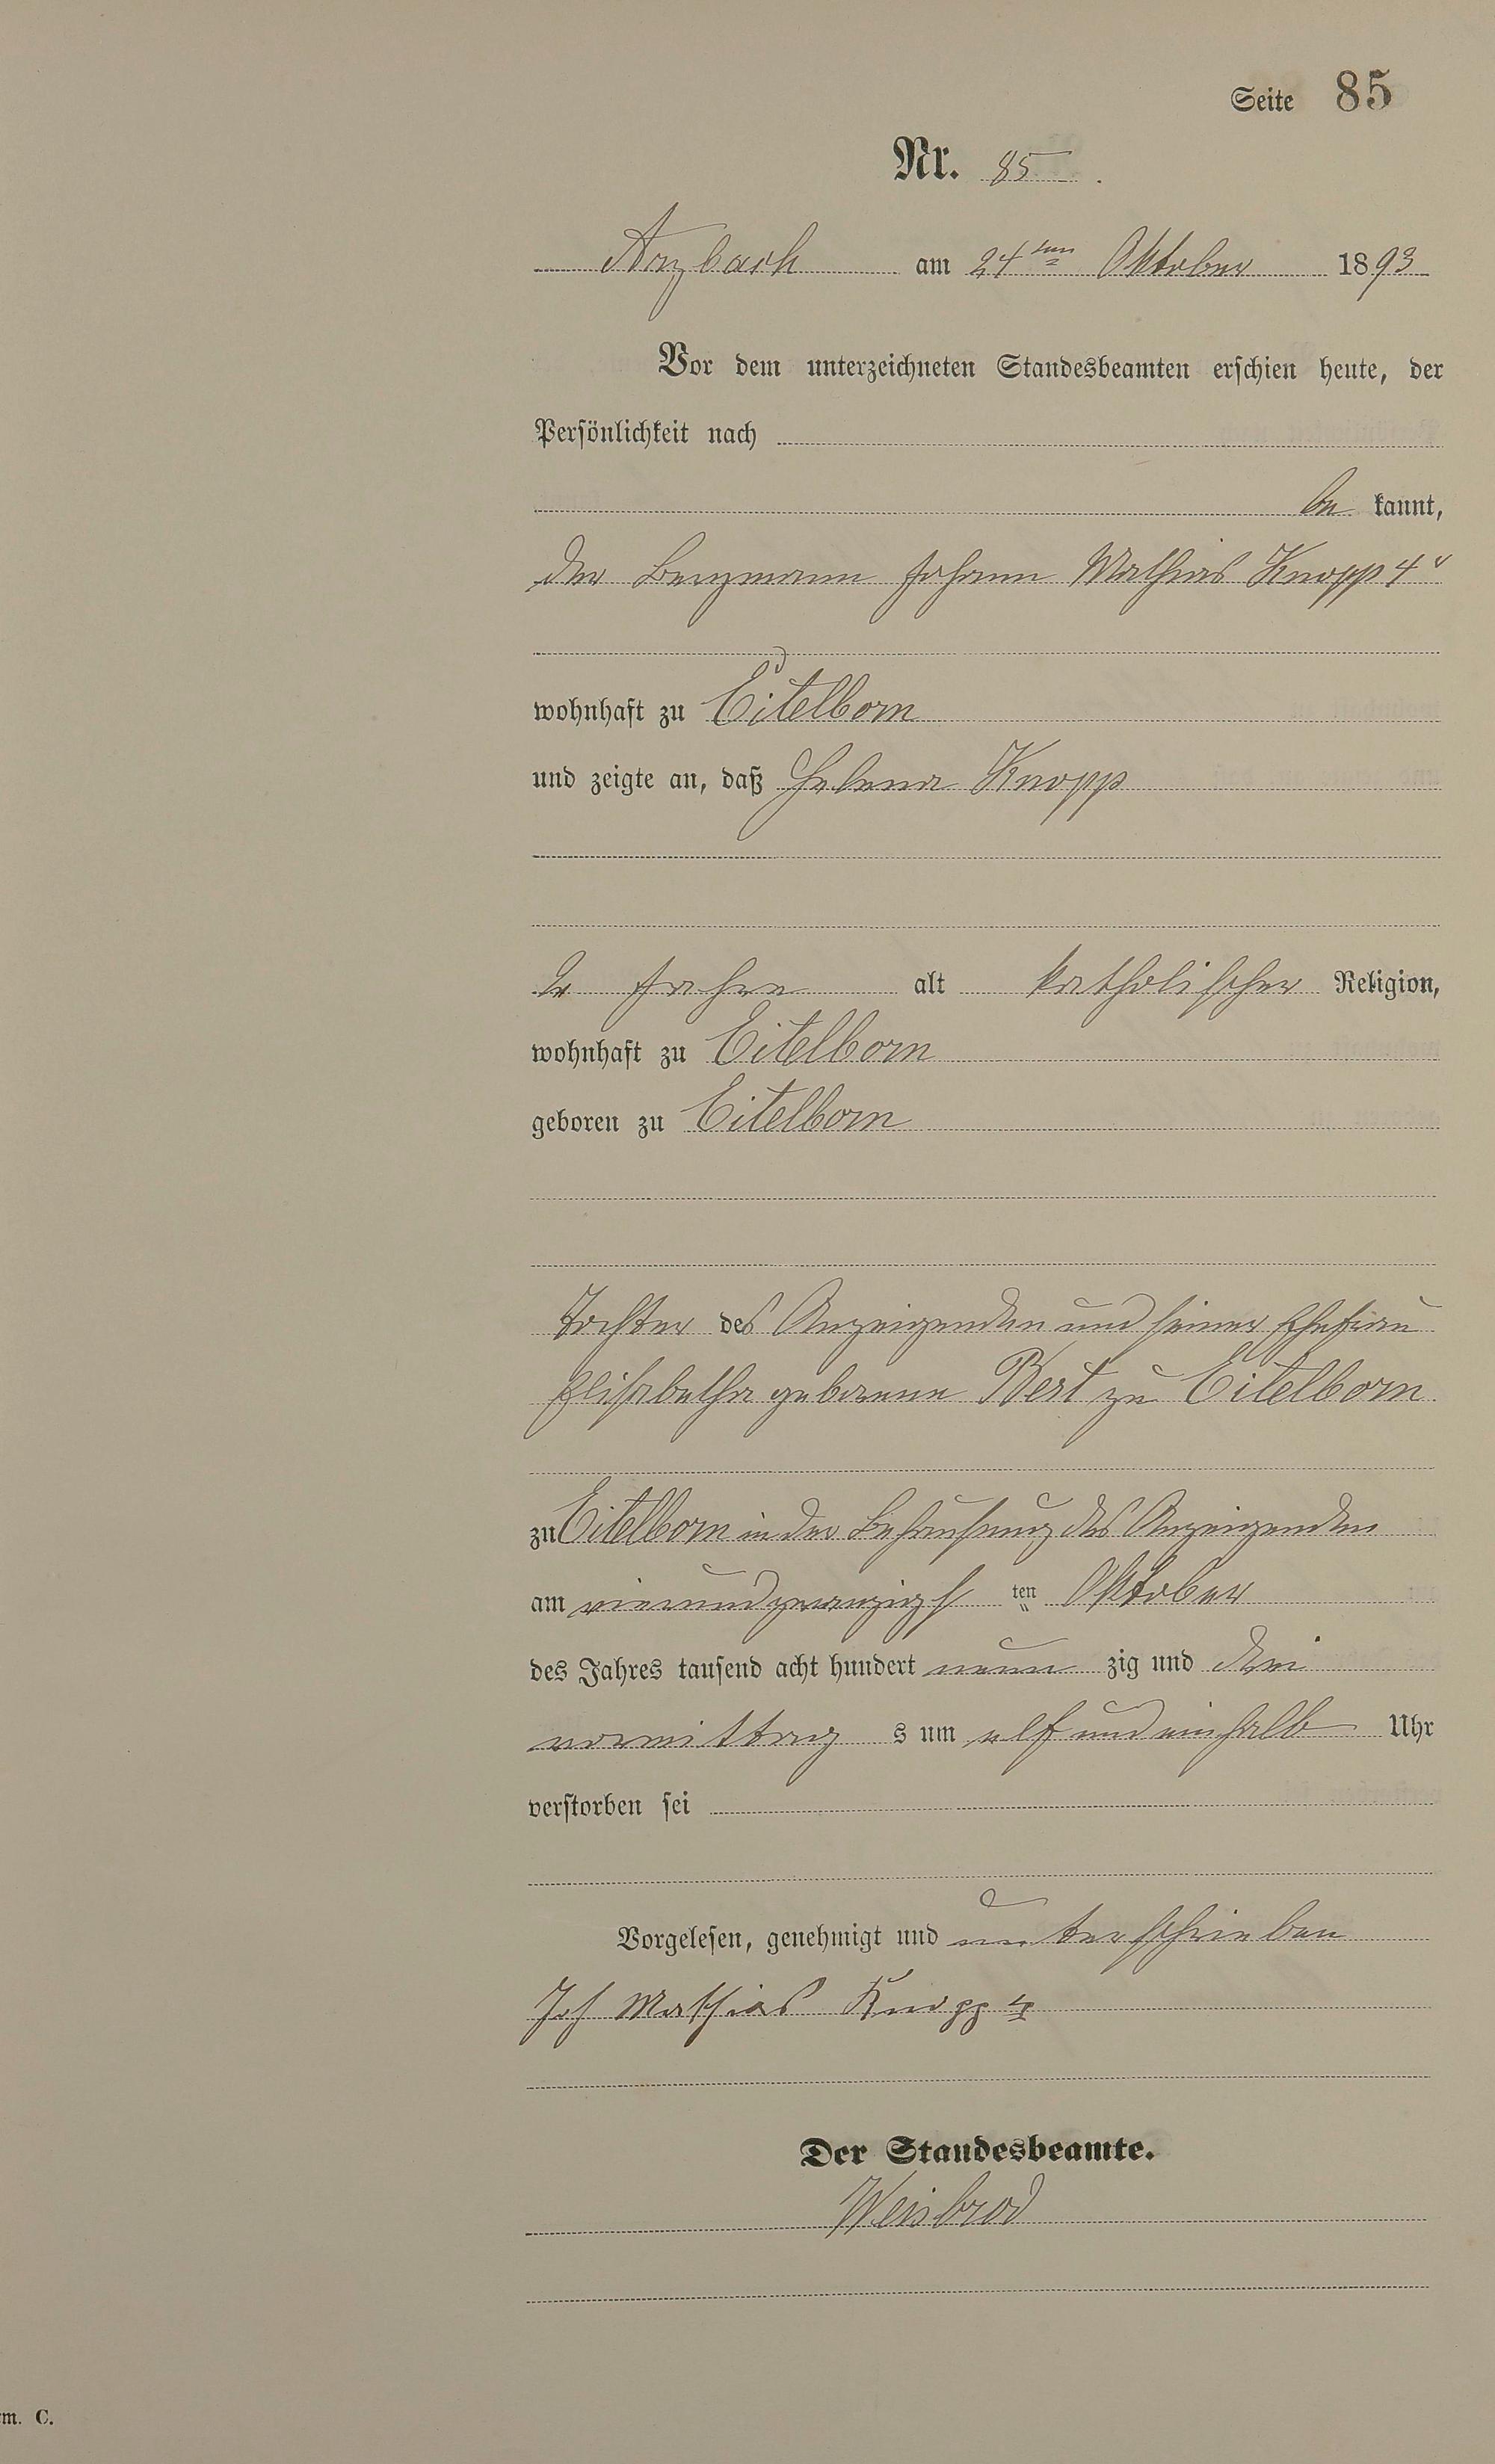 Seite 85
Nr. 85.
Arzbach am 24ten Oktober 1893
Vor dem unterzeichneten Standesbeamten erschien heute, der
Persönlichkeit nach
be kannt,
der Bergmann Johann Mathias Knopp 4r
wohnhaft zu Eitelborn
und zeigte an, daß Helena Knopp
2 Jahre alt katholischer Religion,
wohnhaft zu Eitelborn
geboren zu Eitelborn
Tochter des Anzeigenden und seiner Ehefrau
Elisabetha geborene Best zu Eitelborn
zu Eitelborn in der Behausung des Anzeigenden
am vierundzwanzigs ten Oktober
des Jahres tausend acht hundert neun zig und drei
vormittag s um elf und einhalb Uhr
verstorben sei
Vorgelesen, genehmigt und unterschrieben
Joh Mathias Knopp 4
Der Standesbeamte.
Weisbrod
m. C.